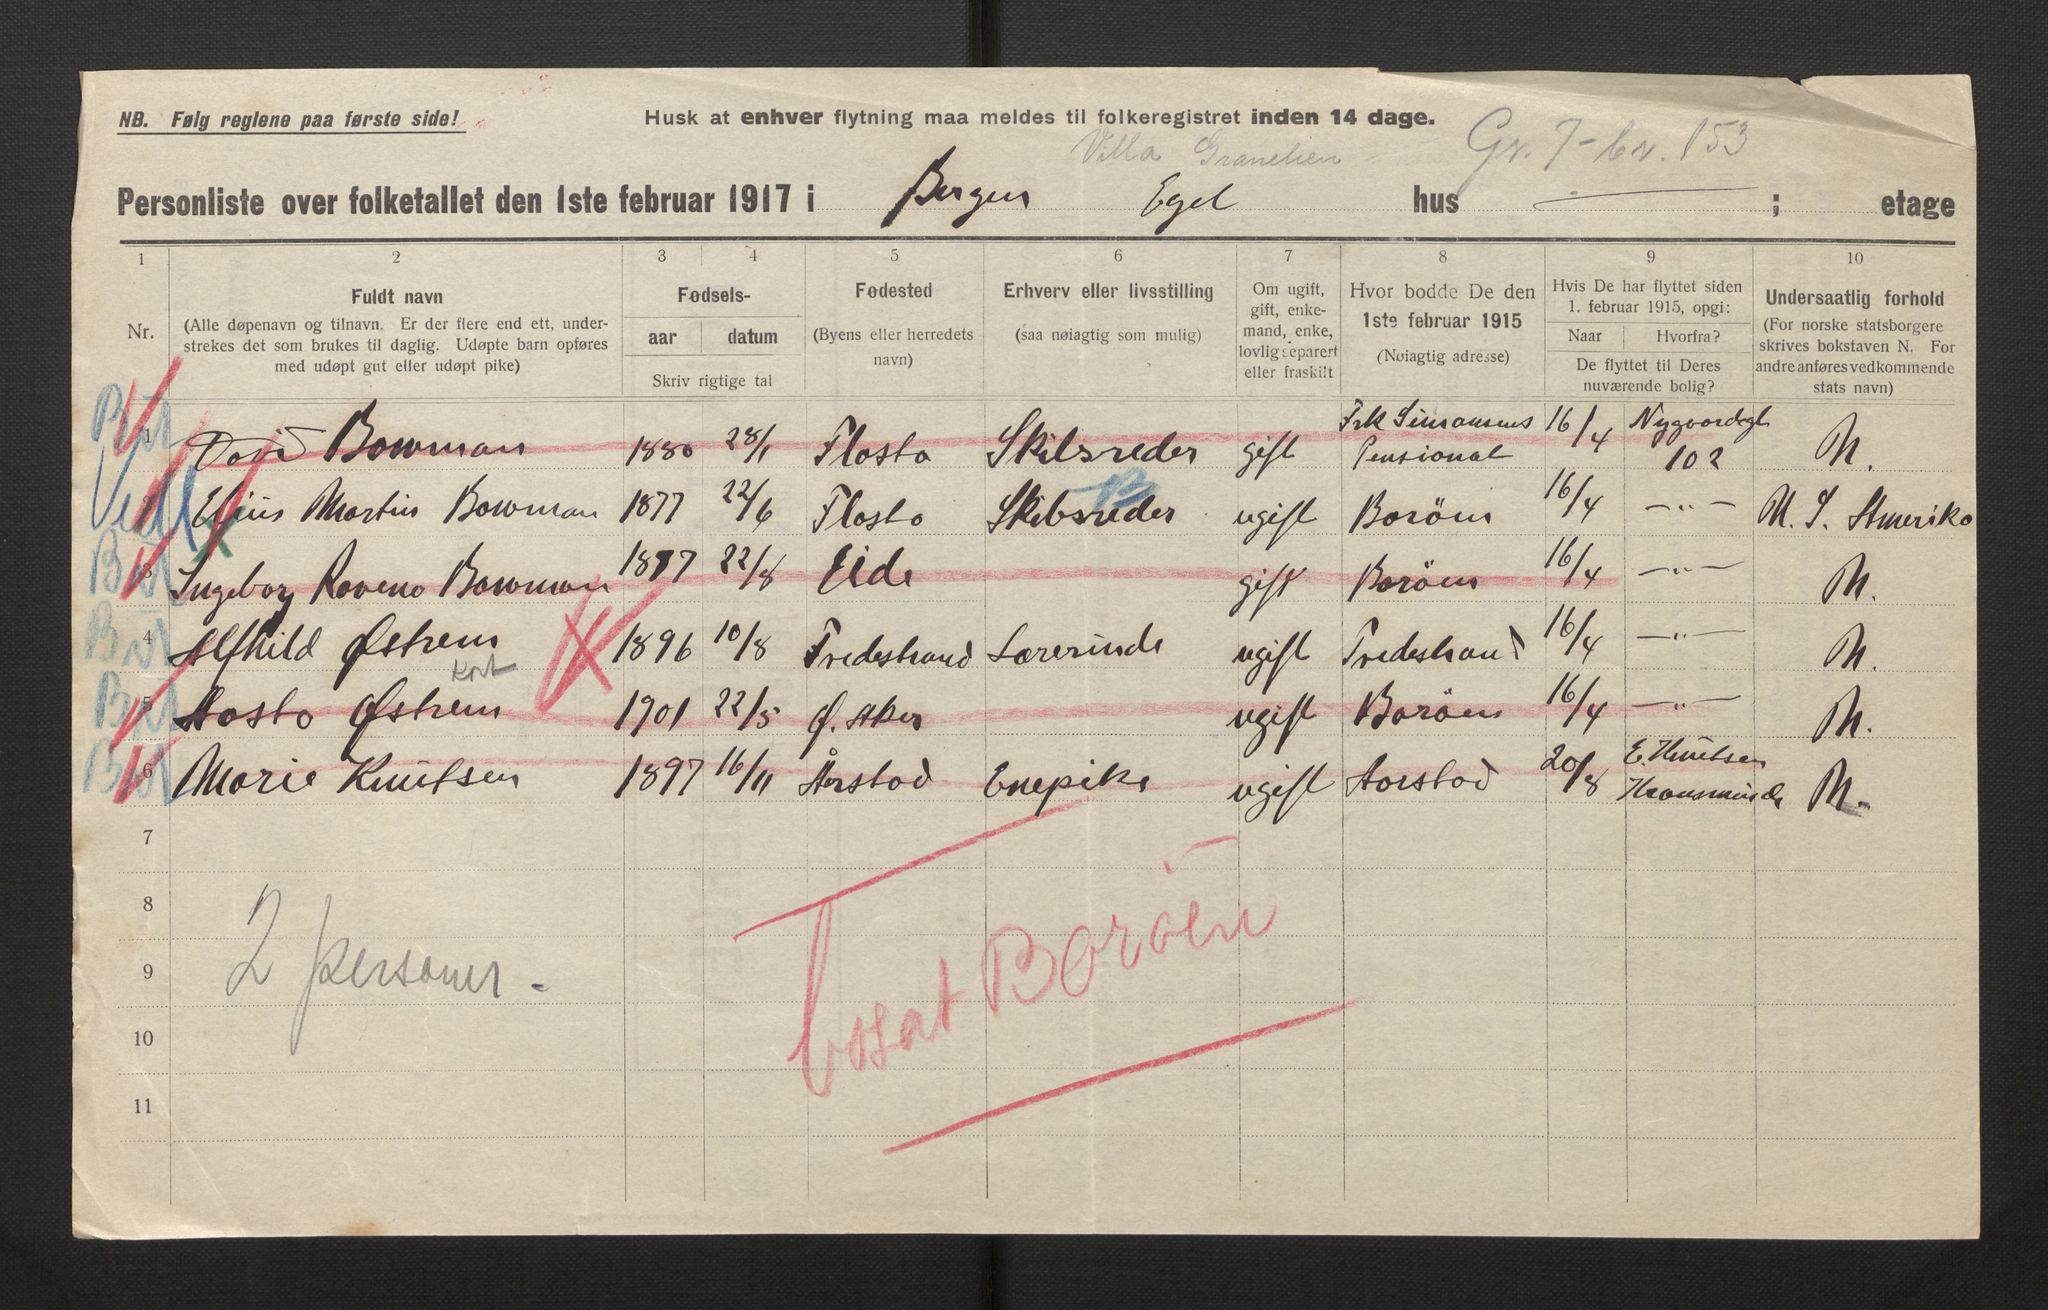 NB. Følg reglene paa første side!
Husk at enhver flytning maa meldes til folkeregistret inden 14 dage.
Villa Granelien
Gr. 7 - br. 153
Personliste over folketallet den 1ste februar 1917 i Bergen Eget hus — ; etage
1 2 3 4 5 6 7 8 9 10
Nr.
Fuldt navn
(Alle døpenavn og tilnavn. Er der flere end ett, under-
strekes det som brukes til daglig. Udøpte barn opføres
med udøpt gut eller udøpt pike)
Fødsels-
aar datum
Skriv rigtige tal
Fødested
(Byens eller herredets
navn)
Erhverv eller livsstilling
(saa nøiagtig som mulig)
Om ugift,
gift, enke-
mand, enke,
lovlig separert
eller fraskilt
Hvor bodde De den
1ste februar 1915
(Nøiagtig adresse)
Hvis De har flyttet siden
1. februar 1915, opgi:
Naar Hvorfra?
De flyttet til Deres
nuværende bolig?
Undersaatlig forhold
(For norske statsborgere
skrives bokstaven N. For
andre anføres vedkommende
stats navn)
1 Bowman 1880 28/1 Flosta Skibsreder gift Frk Simonsens Pensionat 16/4 Nygaardsgt 102 N.
2 Elius Martin Bowman 1877 22/6 Flosta Skibsreder ugift Borøen 16/4 —"— N. S. Amerika
B
3 Ingeborg Ravena Bowman 1887 22/8 Eide gift Borøen 16/4 —"— N.
4 Alfhild Østrem 1896 10/8 Tvedestrand Lærerinde ugift Tvedestrand 16/4 —"— N.
Kort
5 Aasta Østrem 1901 22/5 Ø. Aker ugift Borøen 16/4 —"— N.
6 Marie Knutsen 1897 16/11 Årstad Enepike ugift Aarstad 20/8 E. Knutsen N.
7
8
9
10
11
2 personer -
bosat Borøen